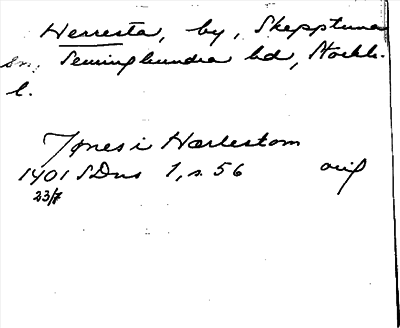 Herresta, by, Skepptuna
sn, Seminghundra hd, Stockh.
l.
Jönes i Hærlestom
1401 SDns 1, s. 56 orig
23/7